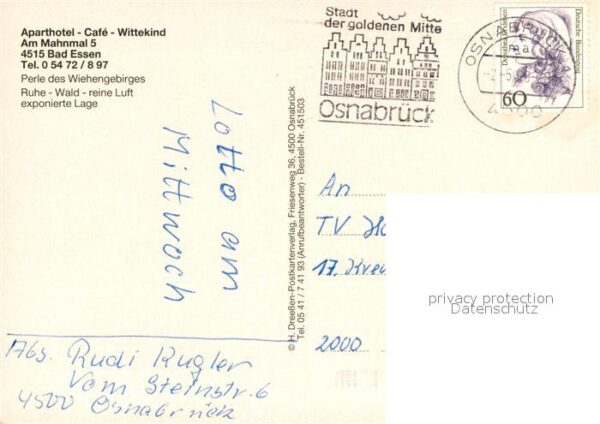 Aparthotel - Café - Wittekind
Am Mahnmal 5
4515 Bad Essen
Tel. 0 54 72 / 8 97
Perle des Wiehengebirges
Ruhe - Wald - reine Luft
exponierte Lage
Lotto am
Mittwoch
Abs. Rudi Kugler
Vom Steinstr. 6
4500 Osnabrück
© H. Dreeßen-Postkartenverlag, Friesenweg 36, 4500 Osnabrück
Tel. 05 41 / 7 41 93 (Anrufbeantworter) - Bestell-Nr. 451503
Stadt
der goldenen Mitte
Osnabrück
OSNABRÜCK
4500
Deutsche Bundespost
60
An
TV
17.
2000
privacy protection
Datenschutz